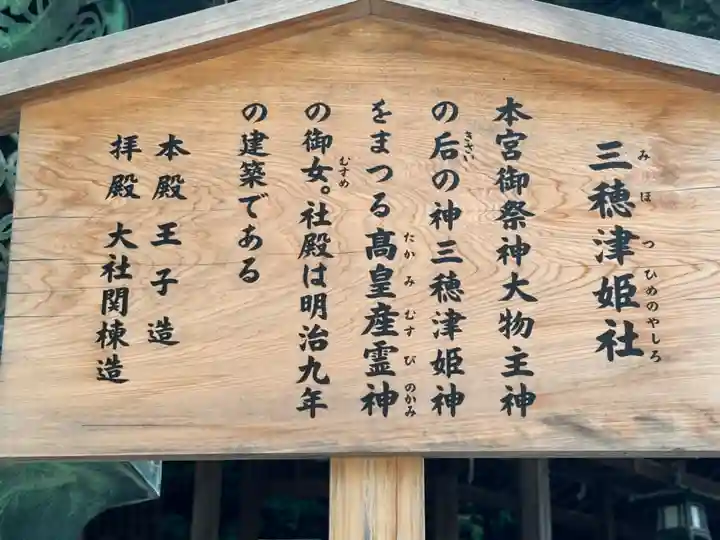 三穂津姫社
みほつひめのやしろ
本宮御祭神大物主神
の后の神三穂津姫神
きさい
をまつる高皇産霊神
たかみむすびのかみ
の御女。社殿は明治九年
むすめ
の建築である
本殿 王子造
拝殿 大社関棟造